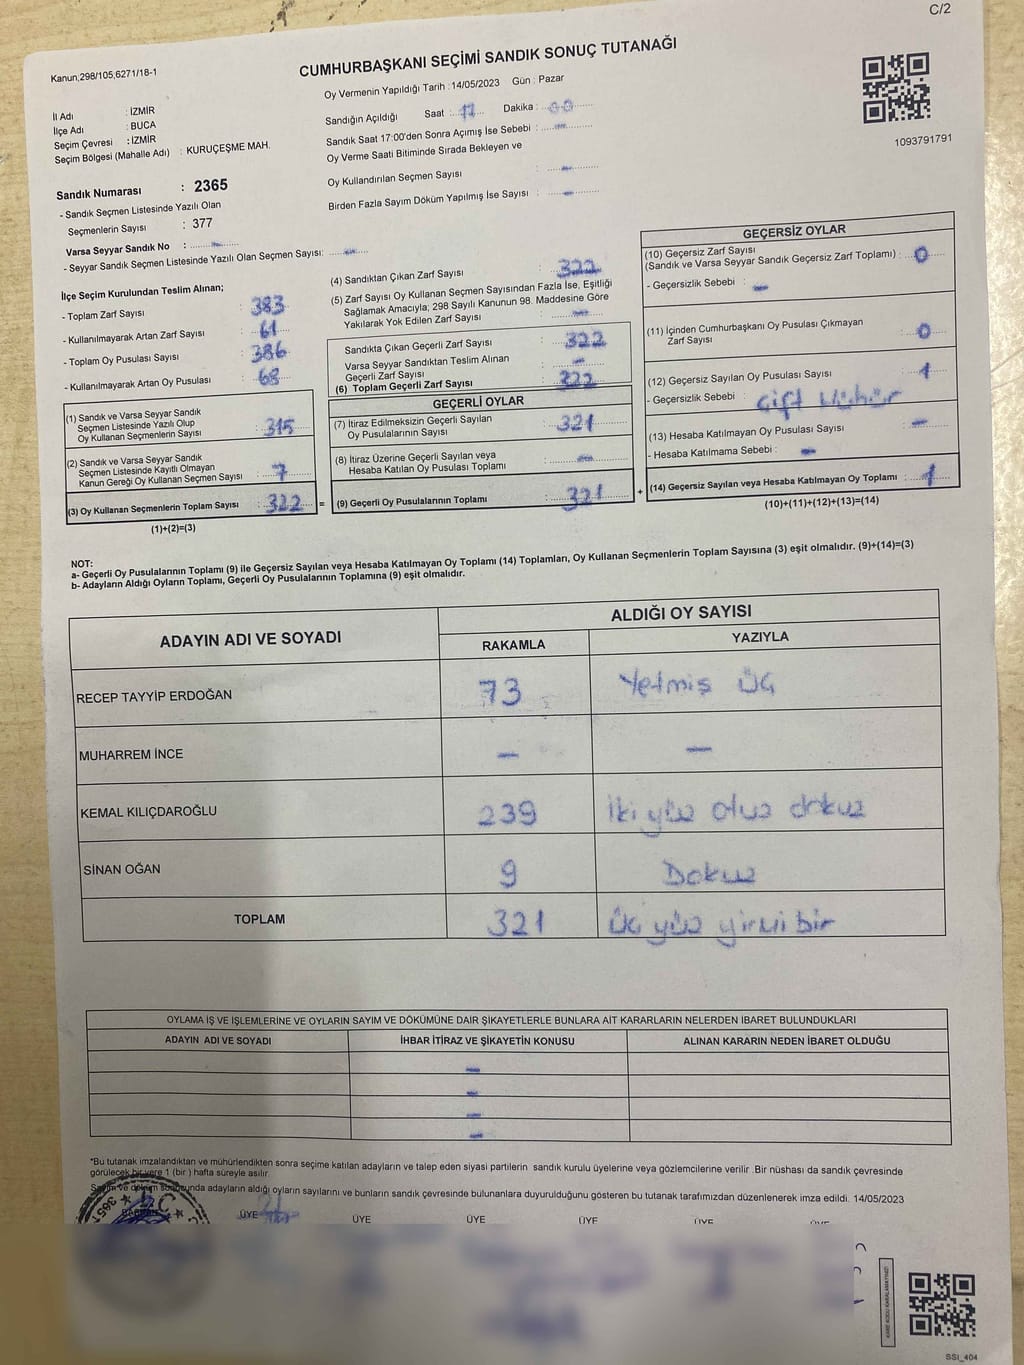 C/2
Kanun;298/105,6271/18-1
CUMHURBAŞKANI SEÇİMİ SANDIK SONUÇ TUTANAĞI
Oy Vermenin Yapıldığı Tarih : 14/05/2023 Gün : Pazar
İl Adı : İZMİR
İlçe Adı : BUCA
Seçim Çevresi : İZMİR
Seçim Bölgesi (Mahalle Adı) : KURUÇEŞME MAH.
Sandığın Açıldığı Saat : 17 Dakika : 00
Sandık Saat 17:00'den Sonra Açımış İse Sebebi : —
Oy Verme Saati Bitiminde Sırada Bekleyen ve
Oy Kullandırılan Seçmen Sayısı : —
Birden Fazla Sayım Döküm Yapılmış İse Sayısı : —
1093791791
Sandık Numarası : 2365
- Sandık Seçmen Listesinde Yazılı Olan
Seçmenlerin Sayısı : 377
Varsa Seyyar Sandık No : —
- Seyyar Sandık Seçmen Listesinde Yazılı Olan Seçmen Sayısı: —
İlçe Seçim Kurulundan Teslim Alınan;
- Toplam Zarf Sayısı : 383
- Kullanılmayarak Artan Zarf Sayısı : 61
- Toplam Oy Pusulası Sayısı : 386
- Kullanılmayarak Artan Oy Pusulası : 68
(1) Sandık ve Varsa Seyyar Sandık
Seçmen Listesinde Yazılı Olup
Oy Kullanan Seçmenlerin Sayısı : 315
(2) Sandık ve Varsa Seyyar Sandık
Seçmen Listesinde Kayıtlı Olmayan
Kanun Gereği Oy Kullanan Seçmen Sayısı : 7
(3) Oy Kullanan Seçmenlerin Toplam Sayısı : 322 =
(1)+(2)=(3)
(4) Sandıktan Çıkan Zarf Sayısı : 322
(5) Zarf Sayısı Oy Kullanan Seçmen Sayısından Fazla İse, Eşitliği
Sağlamak Amacıyla; 298 Sayılı Kanunun 98. Maddesine Göre
Yakılarak Yok Edilen Zarf Sayısı : —
Sandıkta Çıkan Geçerli Zarf Sayısı : 322
Varsa Seyyar Sandıktan Teslim Alınan
Geçerli Zarf Sayısı : —
(6) Toplam Geçerli Zarf Sayısı : 322
GEÇERLİ OYLAR
(7) İtiraz Edilmeksizin Geçerli Sayılan
Oy Pusulalarının Sayısı : 321
(8) İtiraz Üzerine Geçerli Sayılan veya
Hesaba Katılan Oy Pusulası Toplamı : —
(9) Geçerli Oy Pusulalarının Toplamı : 321 +
GEÇERSİZ OYLAR
(10) Geçersiz Zarf Sayısı
(Sandık ve Varsa Seyyar Sandık Geçersiz Zarf Toplamı) : 0
- Geçersizlik Sebebi : —
(11) İçinden Cumhurbaşkanı Oy Pusulası Çıkmayan
Zarf Sayısı : 0
(12) Geçersiz Sayılan Oy Pusulası Sayısı : 1
- Geçersizlik Sebebi : Çift Mühür
(13) Hesaba Katılmayan Oy Pusulası Sayısı : —
- Hesaba Katılmama Sebebi : —
(14) Geçersiz Sayılan veya Hesaba Katılmayan Oy Toplamı : 1
(10)+(11)+(12)+(13)=(14)
NOT:
a- Geçerli Oy Pusulalarının Toplamı (9) ile Geçersiz Sayılan veya Hesaba Katılmayan Oy Toplamı (14) Toplamları, Oy Kullanan Seçmenlerin Toplam Sayısına (3) eşit olmalıdır. (9)+(14)=(3)
b- Adayların Aldığı Oyların Toplamı, Geçerli Oy Pusulalarının Toplamına (9) eşit olmalıdır.
ADAYIN ADI VE SOYADI ALDIĞI OY SAYISI
RAKAMLA YAZIYLA
RECEP TAYYİP ERDOĞAN 73 Yetmiş üç
MUHARREM İNCE — —
KEMAL KILIÇDAROĞLU 239 İki yüz otuz dokuz
SİNAN OĞAN 9 Dokuz
TOPLAM 321 Üç yüz yirmi bir
OYLAMA İŞ VE İŞLEMLERİNE VE OYLARIN SAYIM VE DÖKÜMÜNE DAİR ŞİKAYETLERLE BUNLARA AİT KARARLARIN NELERDEN İBARET BULUNDUKLARI
ADAYIN ADI VE SOYADI İHBAR İTİRAZ VE ŞİKAYETİN KONUSU ALINAN KARARIN NEDEN İBARET OLDUĞU
—
—
—
—
*Bu tutanak imzalandıktan ve mühürlendikten sonra seçime katılan adayların ve talep eden siyasi partilerin sandık kurulu üyelerine veya gözlemcilerine verilir. Bir nüshası da sandık çevresinde
görülecek bir yere 1 (bir) hafta süreyle asılır.
Sayım ve döküm sonucunda adayların aldığı oyların sayılarını ve bunların sandık çevresinde bulunanlara duyurulduğunu gösteren bu tutanak tarafımızdan düzenlenerek imza edildi. 14/05/2023
ÜYE ÜYE ÜYE ÜYE ÜYE
KARE KODU KARALAMAYINIZ!
SSI_404